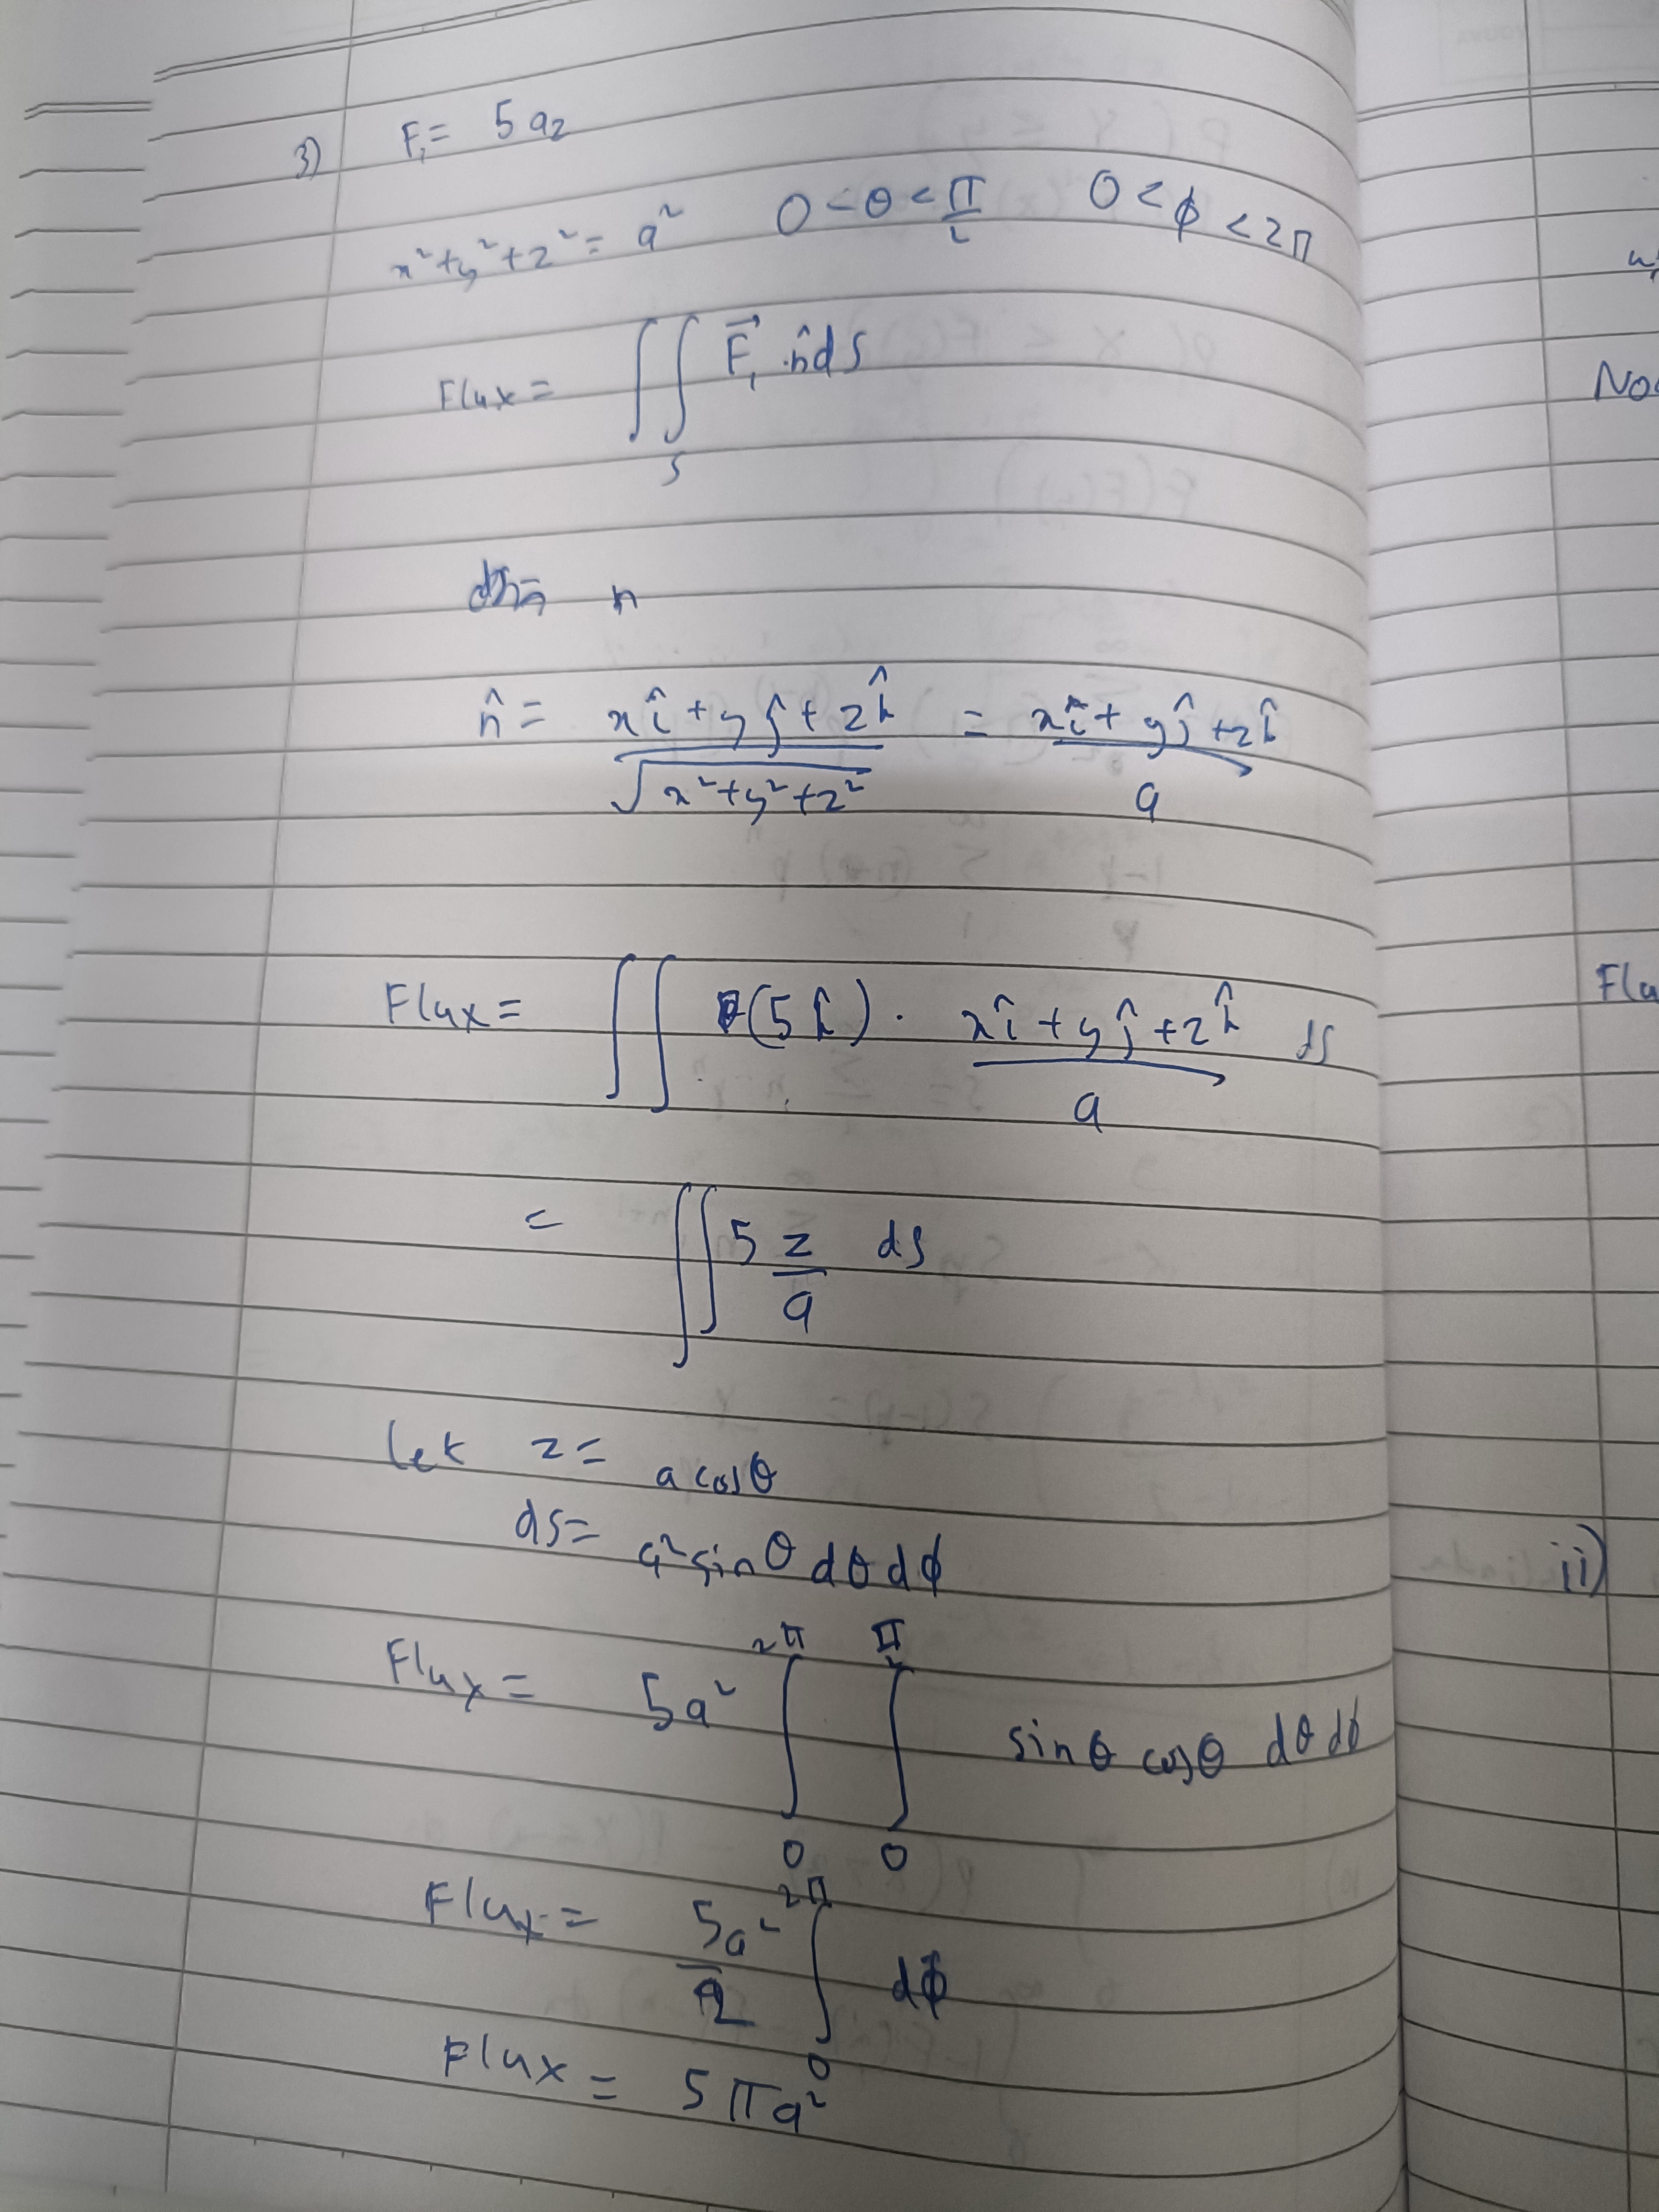 3) F₁ = 5 a_z
x² + y² + z² = a² 0 < θ < π/2 0 < ϕ < 2π
Flux = ∬_S F⃗₁ . n̂ ds
n
n̂ = (xî + yĵ + zk̂)/√(x² + y² + z²) = (xî + yĵ + zk̂)/a
Flux = ∬ (5k̂) . (xî + yĵ + zk̂)/a ds
= ∬ 5 z/a ds
let z = a cosθ
ds = a² sinθ dθ dϕ
Flux = 5a² ∫₀^2π ∫₀^π/2 sinθ cosθ dθ dϕ
Flux = 5a²/2 ∫₀^2π dϕ
Flux = 5πa²
No
Flu
ii)